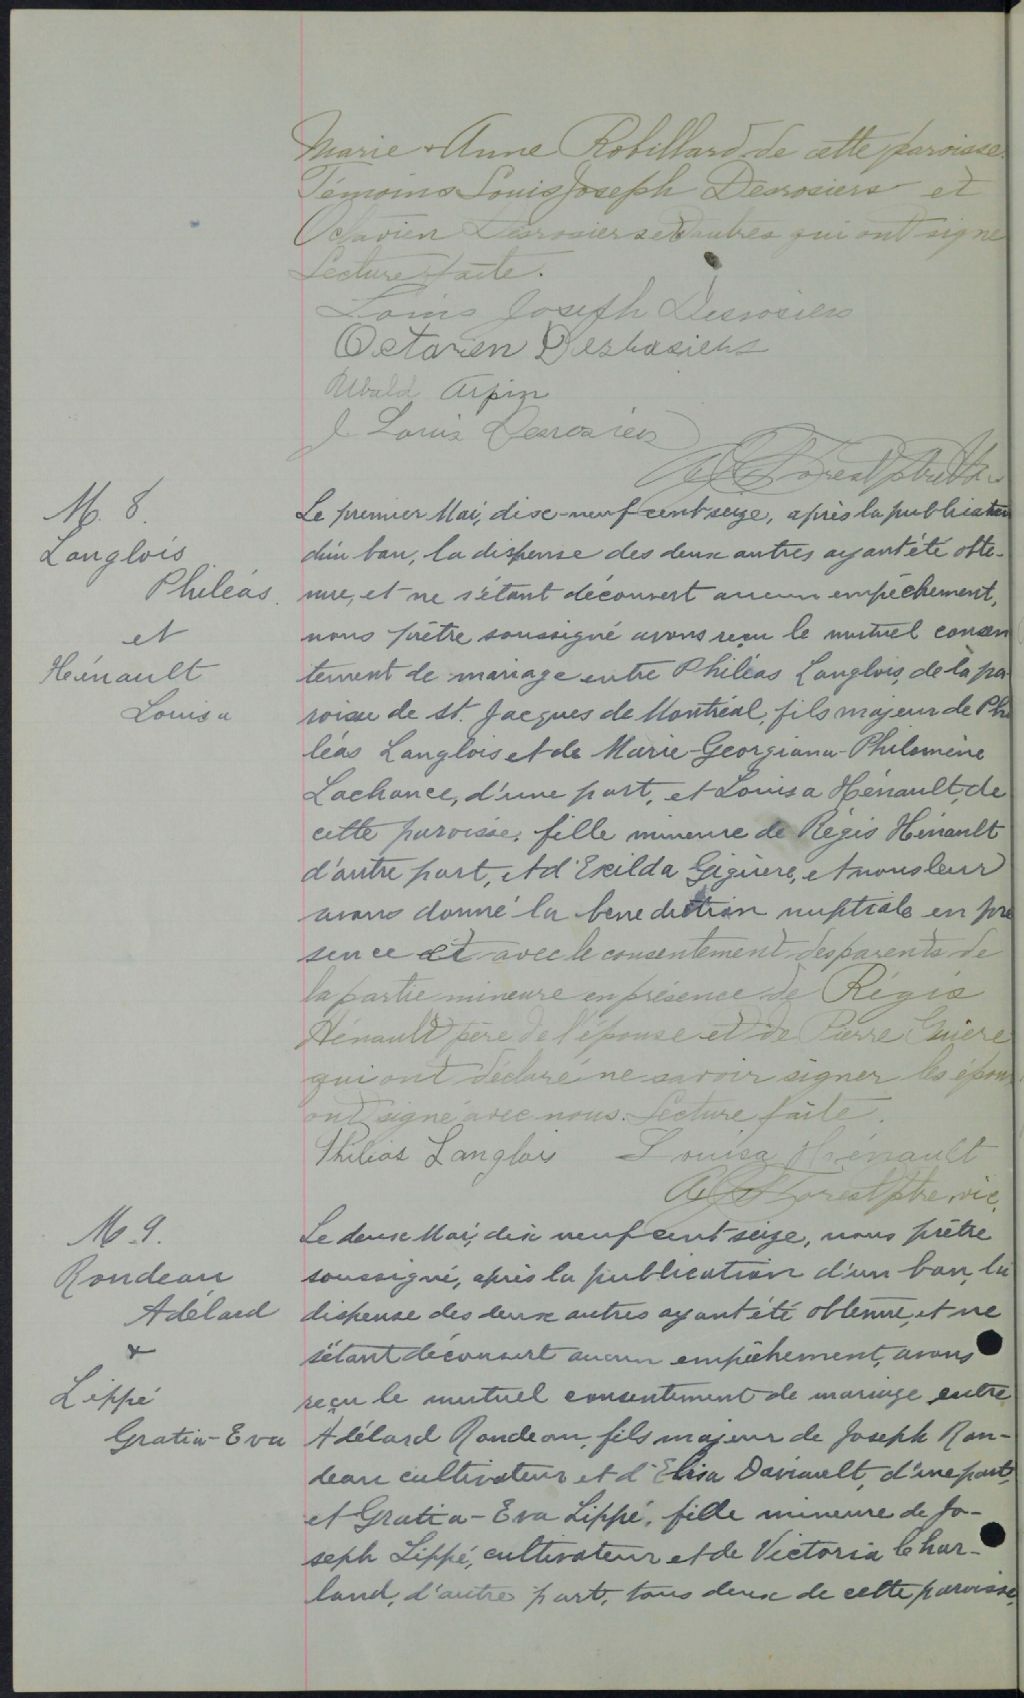 Marie-Anne Robillard de cette paroisse.
Témoins Louis Joseph Desrosiers et
Octavien Desrosiers et d'autres qui ont signé
Lecture faite.
Louis Joseph Desrosiers
Octavien Desrosiers
Ubald Arpin
J Louis Desrosiers
Forest ptre
M. 8.
Langlois
Philéas.
et
Hénault
Louisa
Le premier Mai, dix-neuf cent seize, après la publication
d'un ban, la dispense des deux autres ayant été obte-
nue, et ne s'étant découvert aucun empêchement,
nous prêtre soussigné avons reçu le mutuel consen
tement de mariage entre Philéas Langlois, de la pa
roisse de St. Jacques de Montréal, fils majeur de Phi
léas Langlois et de Marie-Georgiana-Philomène
Lachance, d'une part, et Louisa Hénault, de
cette paroisse, fille mineure de Régis Hénault
d'autre part, et d'Exilda Giguère, et nous leur
avons donné la bénédiction nuptiale en pré
sence et avec le consentement des parents de
la partie mineure en présence de Régis
Hénault père de l'épouse et de Pierre
qui ont déclaré ne savoir signer les époux
ont signé avec nous. Lecture faite.
Philias Langlois Louisa Hénault
Forest ptre, vic.
M. 9.
Rondeau
Adélard
&
Lippé
Gratia-Eva
Le deux Mai, dix neuf cent seize, nous prêtre
soussigné, après la publication d'un ban, la
dispense des deux autres ayant été obtenue, et ne
s'étant découvert aucun empêchement, avons
reçu le mutuel consentement de mariage entre
Adélard Rondeau, fils majeur de Joseph Ron-
deau cultivateur et d'Elisa Daviault, d'une part,
et Gratia-Eva Lippé, fille mineure de Jo-
seph Lippé, cultivateur et de Victoria Char-
land, d'autre part, tous deux de cette paroisse,